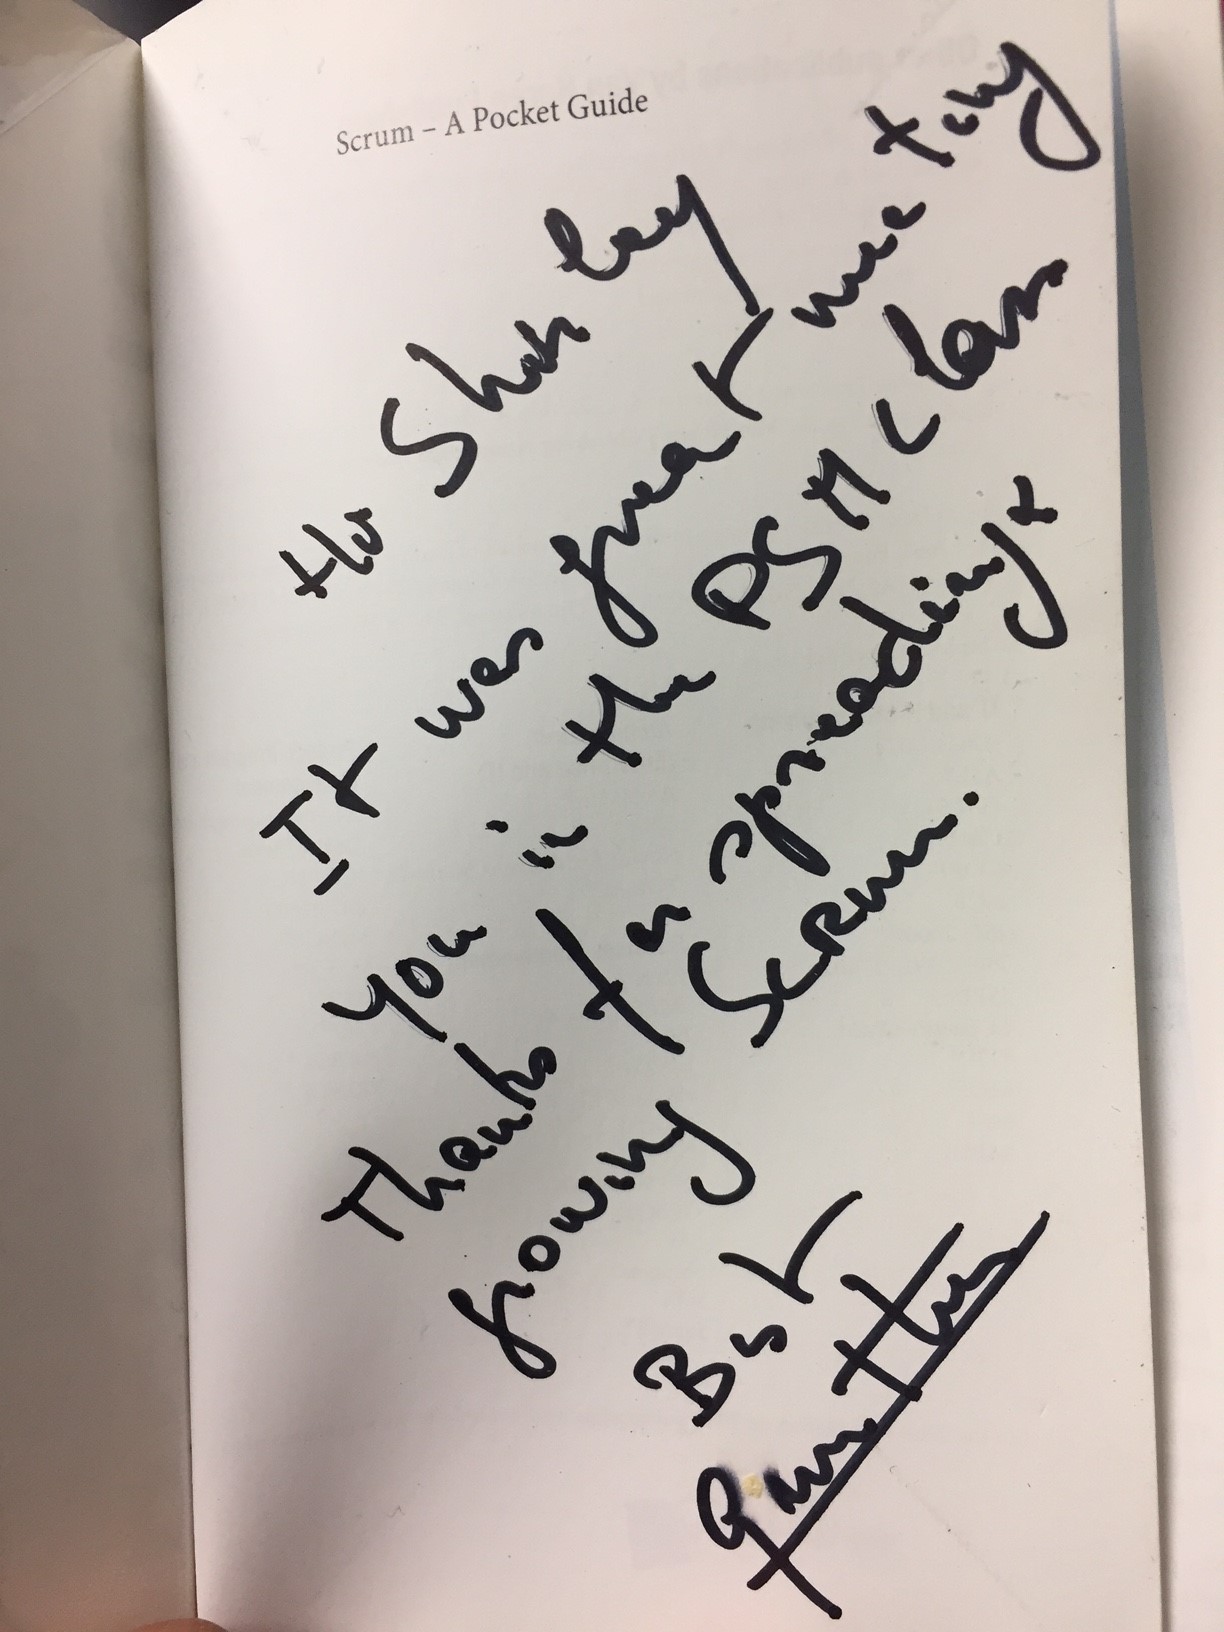 Scrum – A Pocket Guide
It was great meeting
you in the PSM class
Thanks for spreading +
growing Scrum.
Best
Gunther